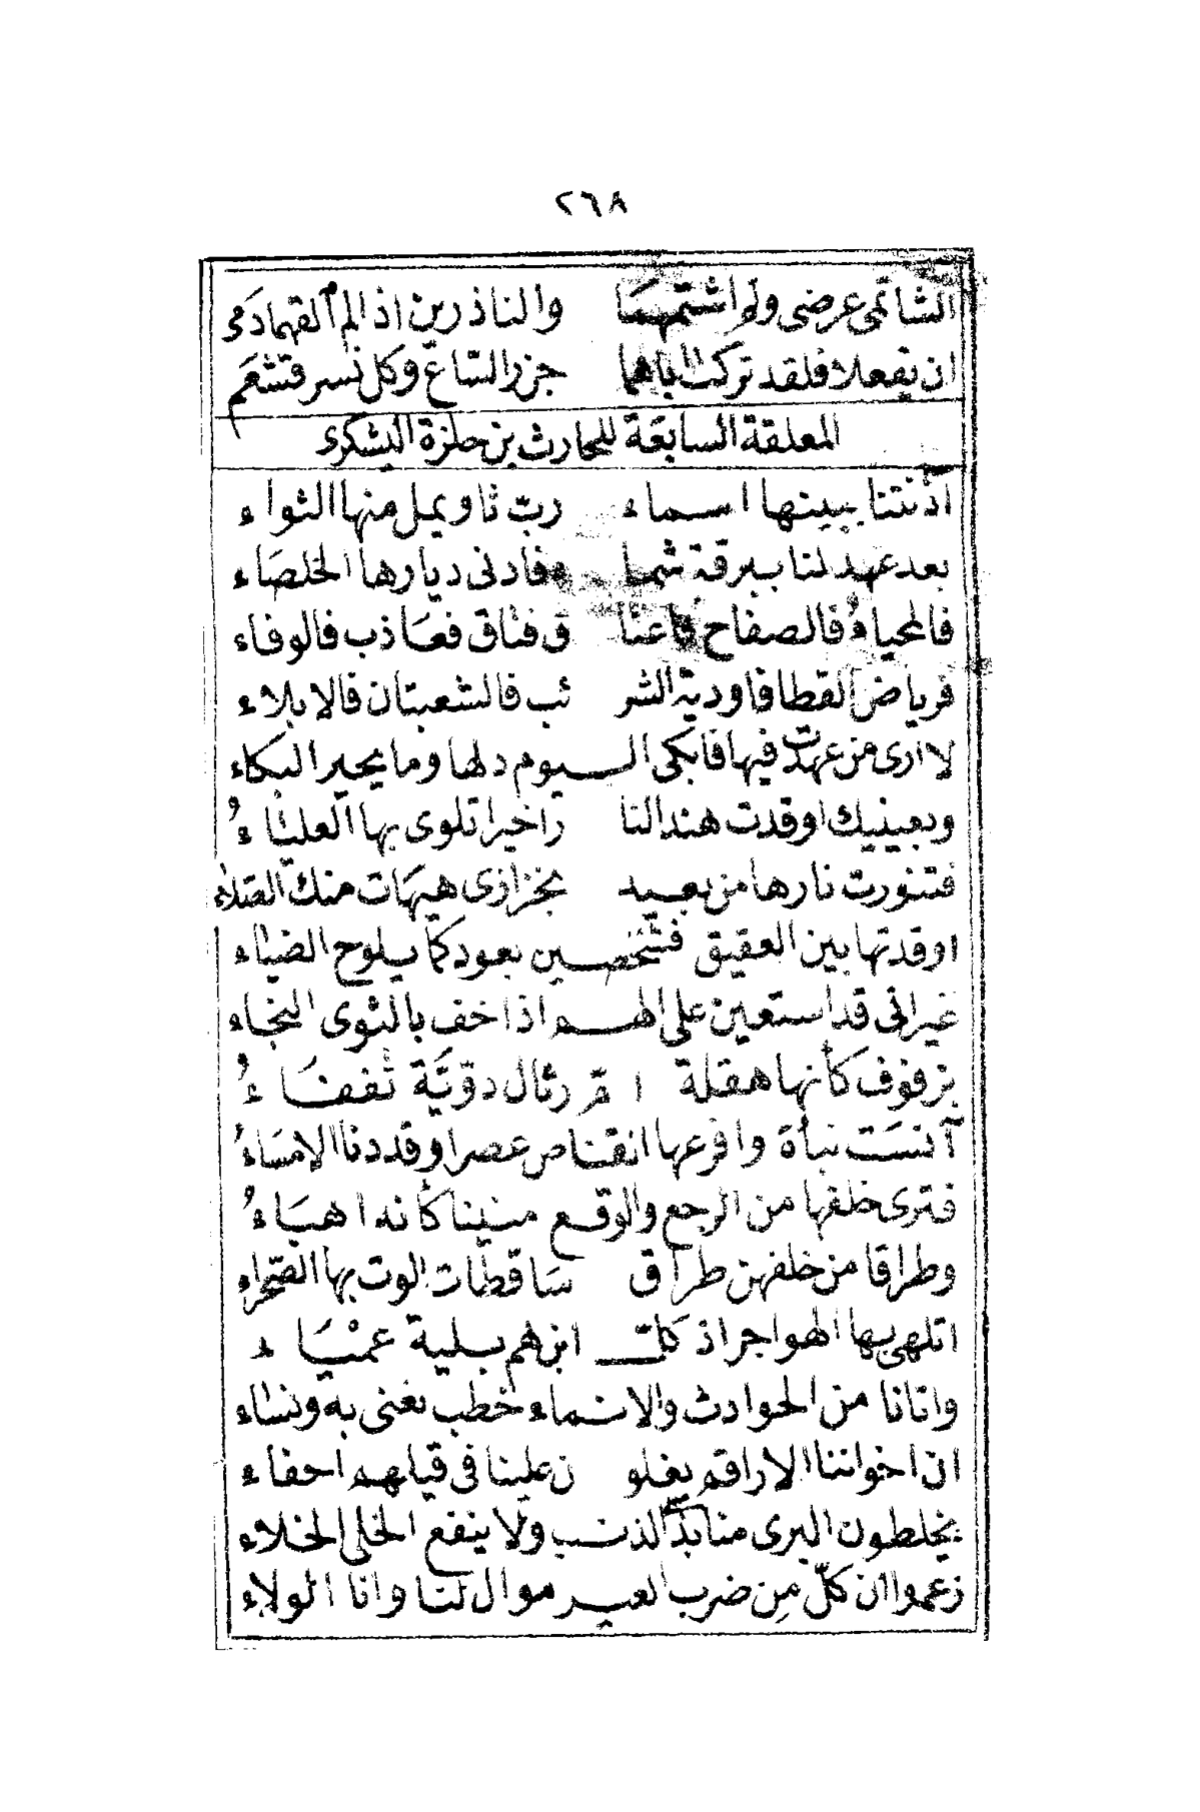 ٢٦٨
الشاتمي عرضي ولم اشتمهما والناذرين اذا لم القهما دمى
ان يفعلا فلقد تركت اباهما جزر السباع وكل نسر قشعم
المعلقة السابعة للحارث بن حلزة اليشكرى
آذنتنا ببينها اسماء ربّ ثاو يمل منها الثواء
بعد عهد لنا ببرقة شما ء فادنى ديارها الخلصاء
فالمحياة فالصفاح فاعنا ق فتاق فعاذب فالوفاء
فرياض القطا فاودية الشر بب فالشعبتان فالابلاء
لا ارى من عهدت فيها فابكى اليوم دلها وما يحير البكاء
وبعينيك اوقدت هند النا ر اخيرا تلوى بها العلياءُ
فتنورت نارها من بعيد بخزازى هيهات منك الصلاء
اوقدتها بين العقيق فشخصين بعود كما يلوح الضياء
غير انى قد استعين على الهم اذا خف بالثوى النجاء
بزفوف كأنها هقلة امّ رئال دوّيّة ثقفاءُ
آنست نبأة وافزعها القناص عصرا وقد دنا الامساءُ
فترى خلفها من الرجع والوقع منينا كأنه اهباءُ
وطراقا من خلفهن طراق ساقطات الوت بها الصحراء
اتلهى بها الهواجر اذ كل ابن هم بلية عمياء
واتانا من الحوادث والانباء خطب نعنى به ونساء
ان اخواننا الاراقم يغلو ن علينا فى قيلهم احفاء
يخلطون البرى منا بذى الذنب ولا ينفع الخلى الخلاء
زعموا ان كلّ من ضرب العير موال لنا وانا الولاء